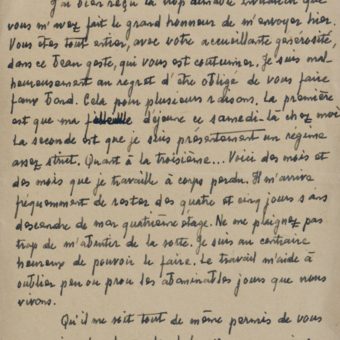 j'ai bien reçu la trop aimable invitation que
vous m'avez fait le grand honneur de m'envoyer hier.
Vous êtes tout entier, avec votre accueillante générosité,
dans ce beau geste, qui vous est coutumier. Je suis mal-
heureusement au regret d'être obligé de vous faire
faux bond. Cela pour plusieurs raisons. La première
est que ma déjeune ce samedi-là chez moi.
La seconde est que je suis présentement un régime
assez strict. Quant à la troisième... Voici des mois et
des mois que je travaille à corps perdu. Il m'arrive
fréquemment de rester des quatre et cinq jours sans
descendre de mon quatrième étage. Ne me plaignez pas
trop de m'absenter de la sorte. Je suis au contraire
heureux de pouvoir le faire. Le travail m'aide à
oublier peu ou prou les abominables jours que nous
vivons.
Qu'il me soit tout de même permis de vous